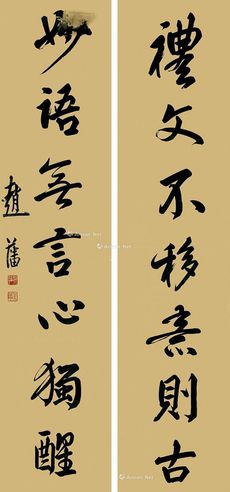 禮文不移意則古
妙語無言心獨醒
趙藩
Artron.Net
Artron.Net
Artron.Net